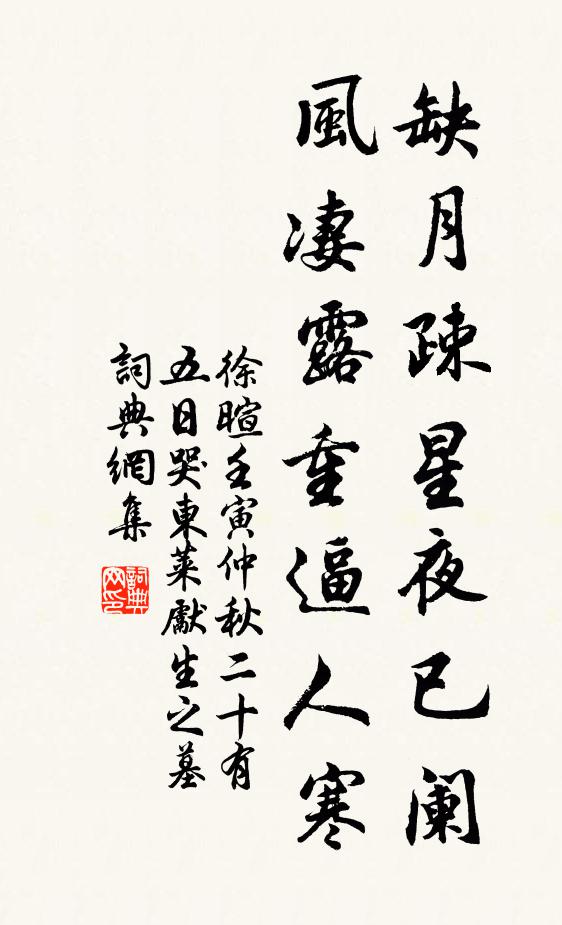 缺月疎星夜已阑
風凄露重逼人寒
徐暄壬寅仲秋二十有
五日哭東萊獻生之墓
詞典網集
詞典网印